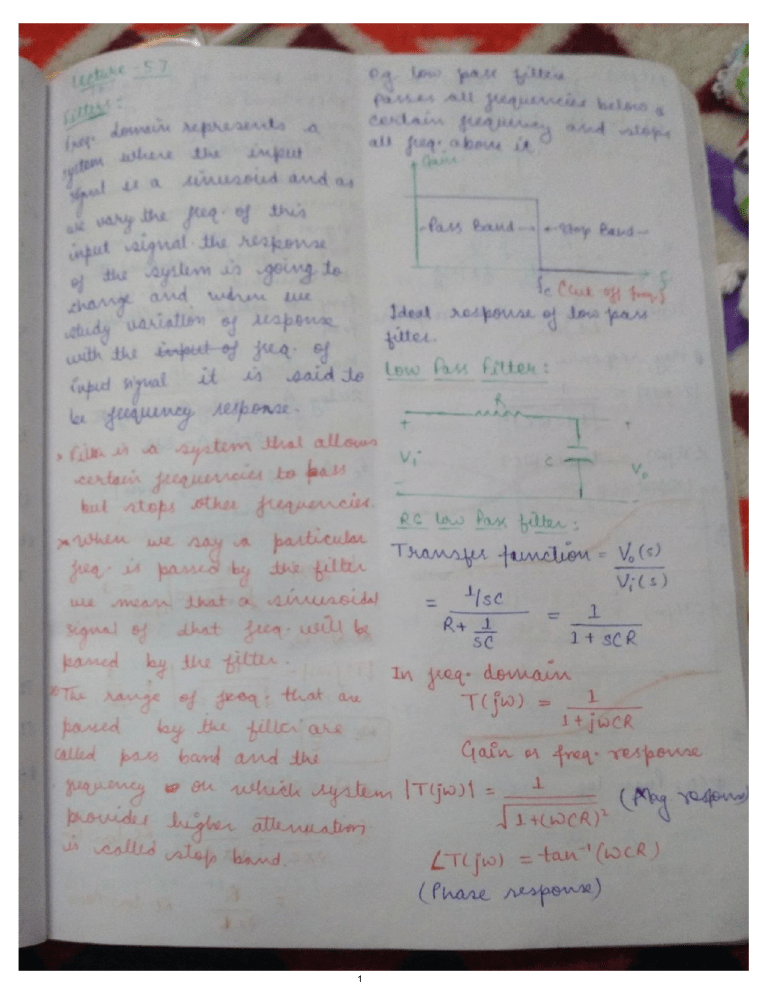 Lecture - 57
Filters:
freq. domain represents a
system where the input
signal is a sinusoid and as
we vary the freq. of this
input signal the response
of the system is going to
change and when we
study variation of response
with the input of freq. of
input signal it is said to
be frequency response.
* Filter is a system that allows
certain frequencies to pass
but stops other frequencies.
* When we say a particular
freq. is passed by the filter
we mean that a sinusoidal
signal of that freq. will be
passed by the filter.
* The range of freq. that are
passed by the filter are
called pass band and the
frequency on which system
provides higher attenuation
is called stop band.
eg low pass filter
passes all frequencies below a
certain frequency and stops
all freq. above it.
Gain
Pass Band
Stop Band
fc (Cut off freq.) f
Ideal response of low pass
filter.
Low Pass Filter:
R
+ +
Vi C Vo
- -
RC Low Pass filter:
Transfer function = Vo(s)/Vi(s)
= 1/sC / (R + 1/sC) = 1/(1 + sCR)
In freq. domain
T(jω) = 1/(1 + jωCR)
Gain or freq. response
|T(jω)| = 1/√(1+(ωCR)²) (Mag response)
∠T(jω) = tan⁻¹(ωCR)
(Phase response)
1